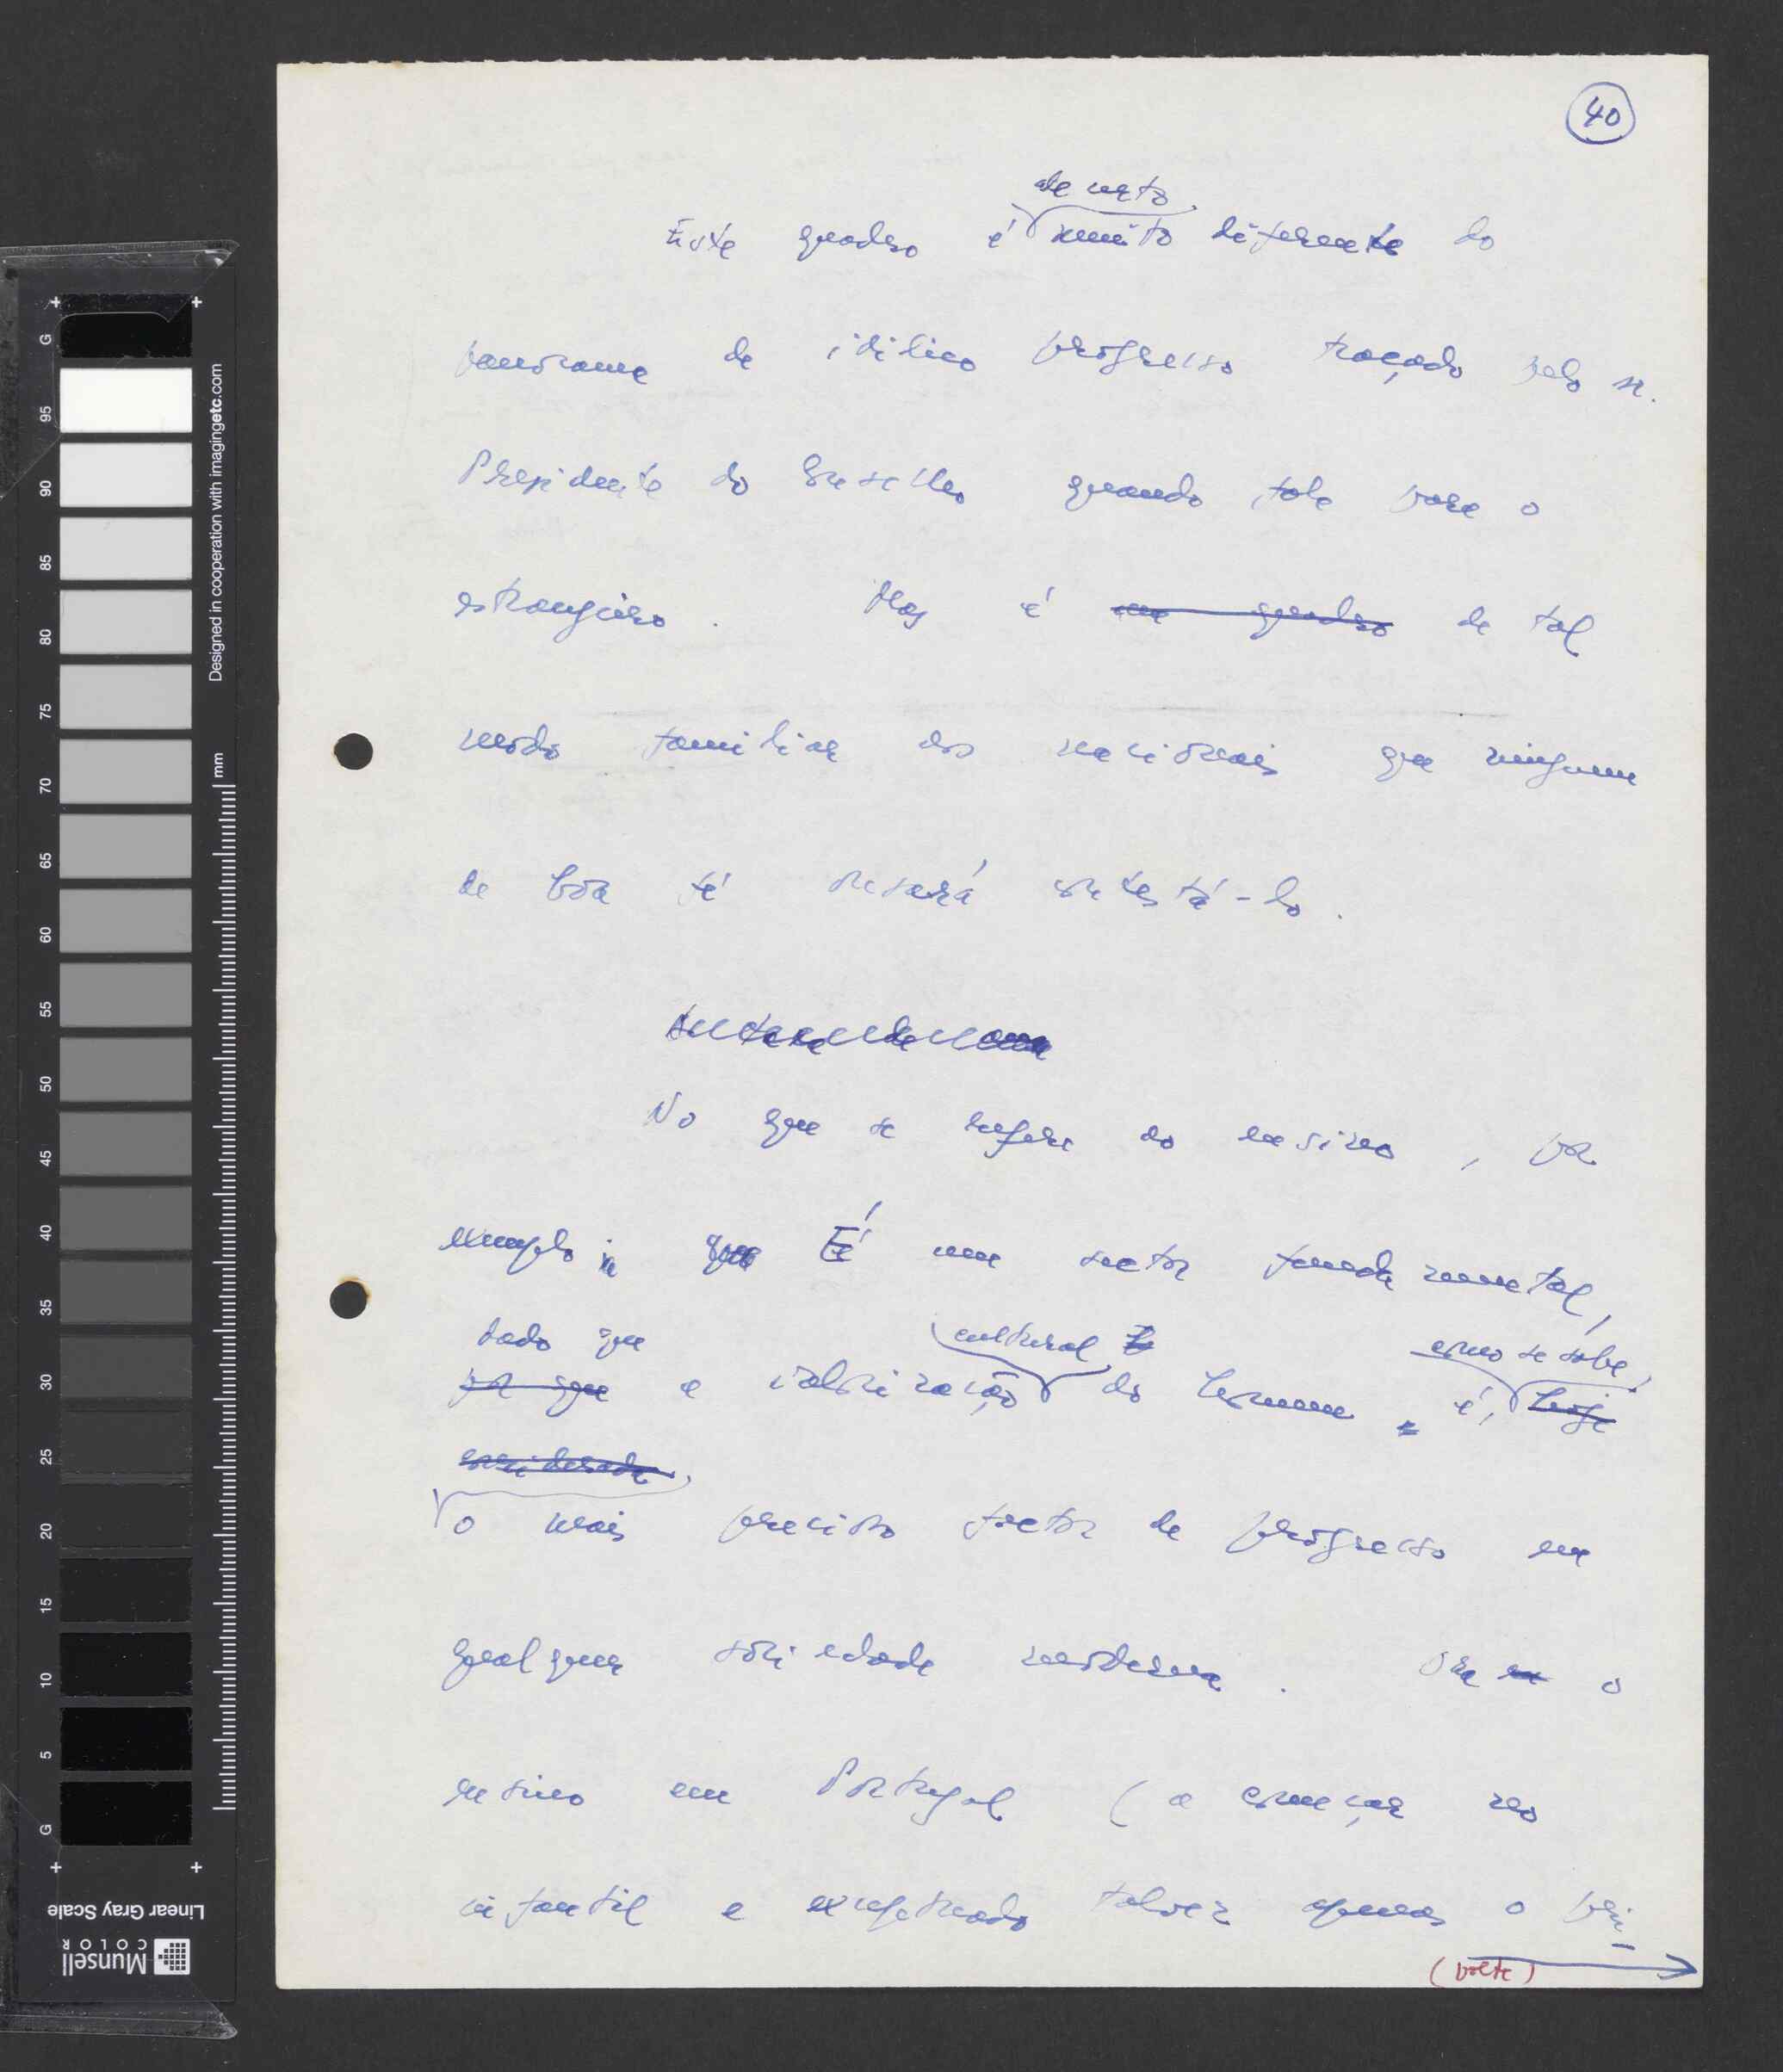 40
de certo
Este quadro é muito diferente do
panorama de idílico progresso traçado pelo sr.
Presidente do Conselho quando fala para o
estrangeiro. Mas é um quadro de tal
modo familiar aos nacionais que ninguem
de boa fé ousará contestá-lo.
No que se refere ao ensino, por
exemplo, que É um sector fundamental,
dado que cultural como se sabe,
por que a valorização do homem é, hoje
considerada
o mais precioso factor de progresso em
qualquer sociedade moderna. Ora o
ensino em Portugal (a começar no
infantil e exceptuado talvez apenas o pri-
(volte)
Designed in cooperation with imagingetc.com
mm
G 95 90 85 80 75 70 65 60 55 50 45 40 35 30 25 20 15 10 5 G
Linear Gray Scale
Munsell
COLOR